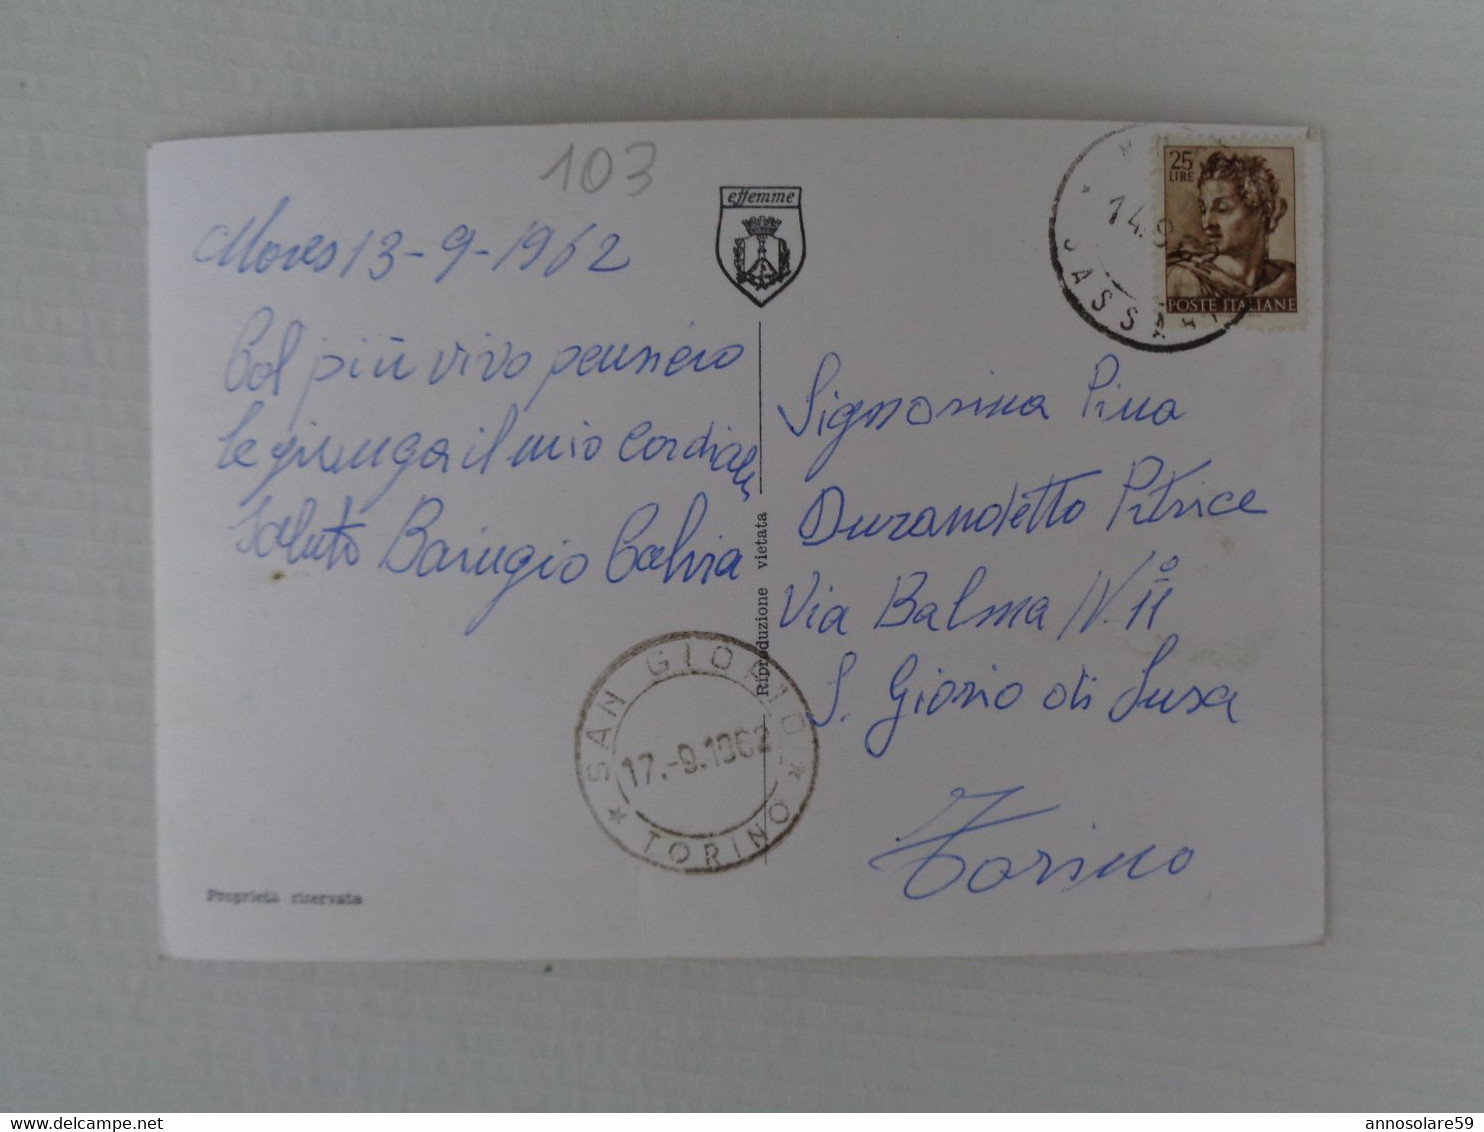 103
Mores 13-9-1962
Col più vivo pensiero
le giunga il mio cordiale
saluto Barugio
effemme
Riproduzione vietata
Proprietà riservata
SAN GIORIO
17.-9.1962
* TORINO *
14.9
SASSARI
25
LIRE
POSTE ITALIANE
Signorina Pina
Durandetto Pitrice
Via Balma N.º 11
S. Giorio di Susa
Torino
annosolare59